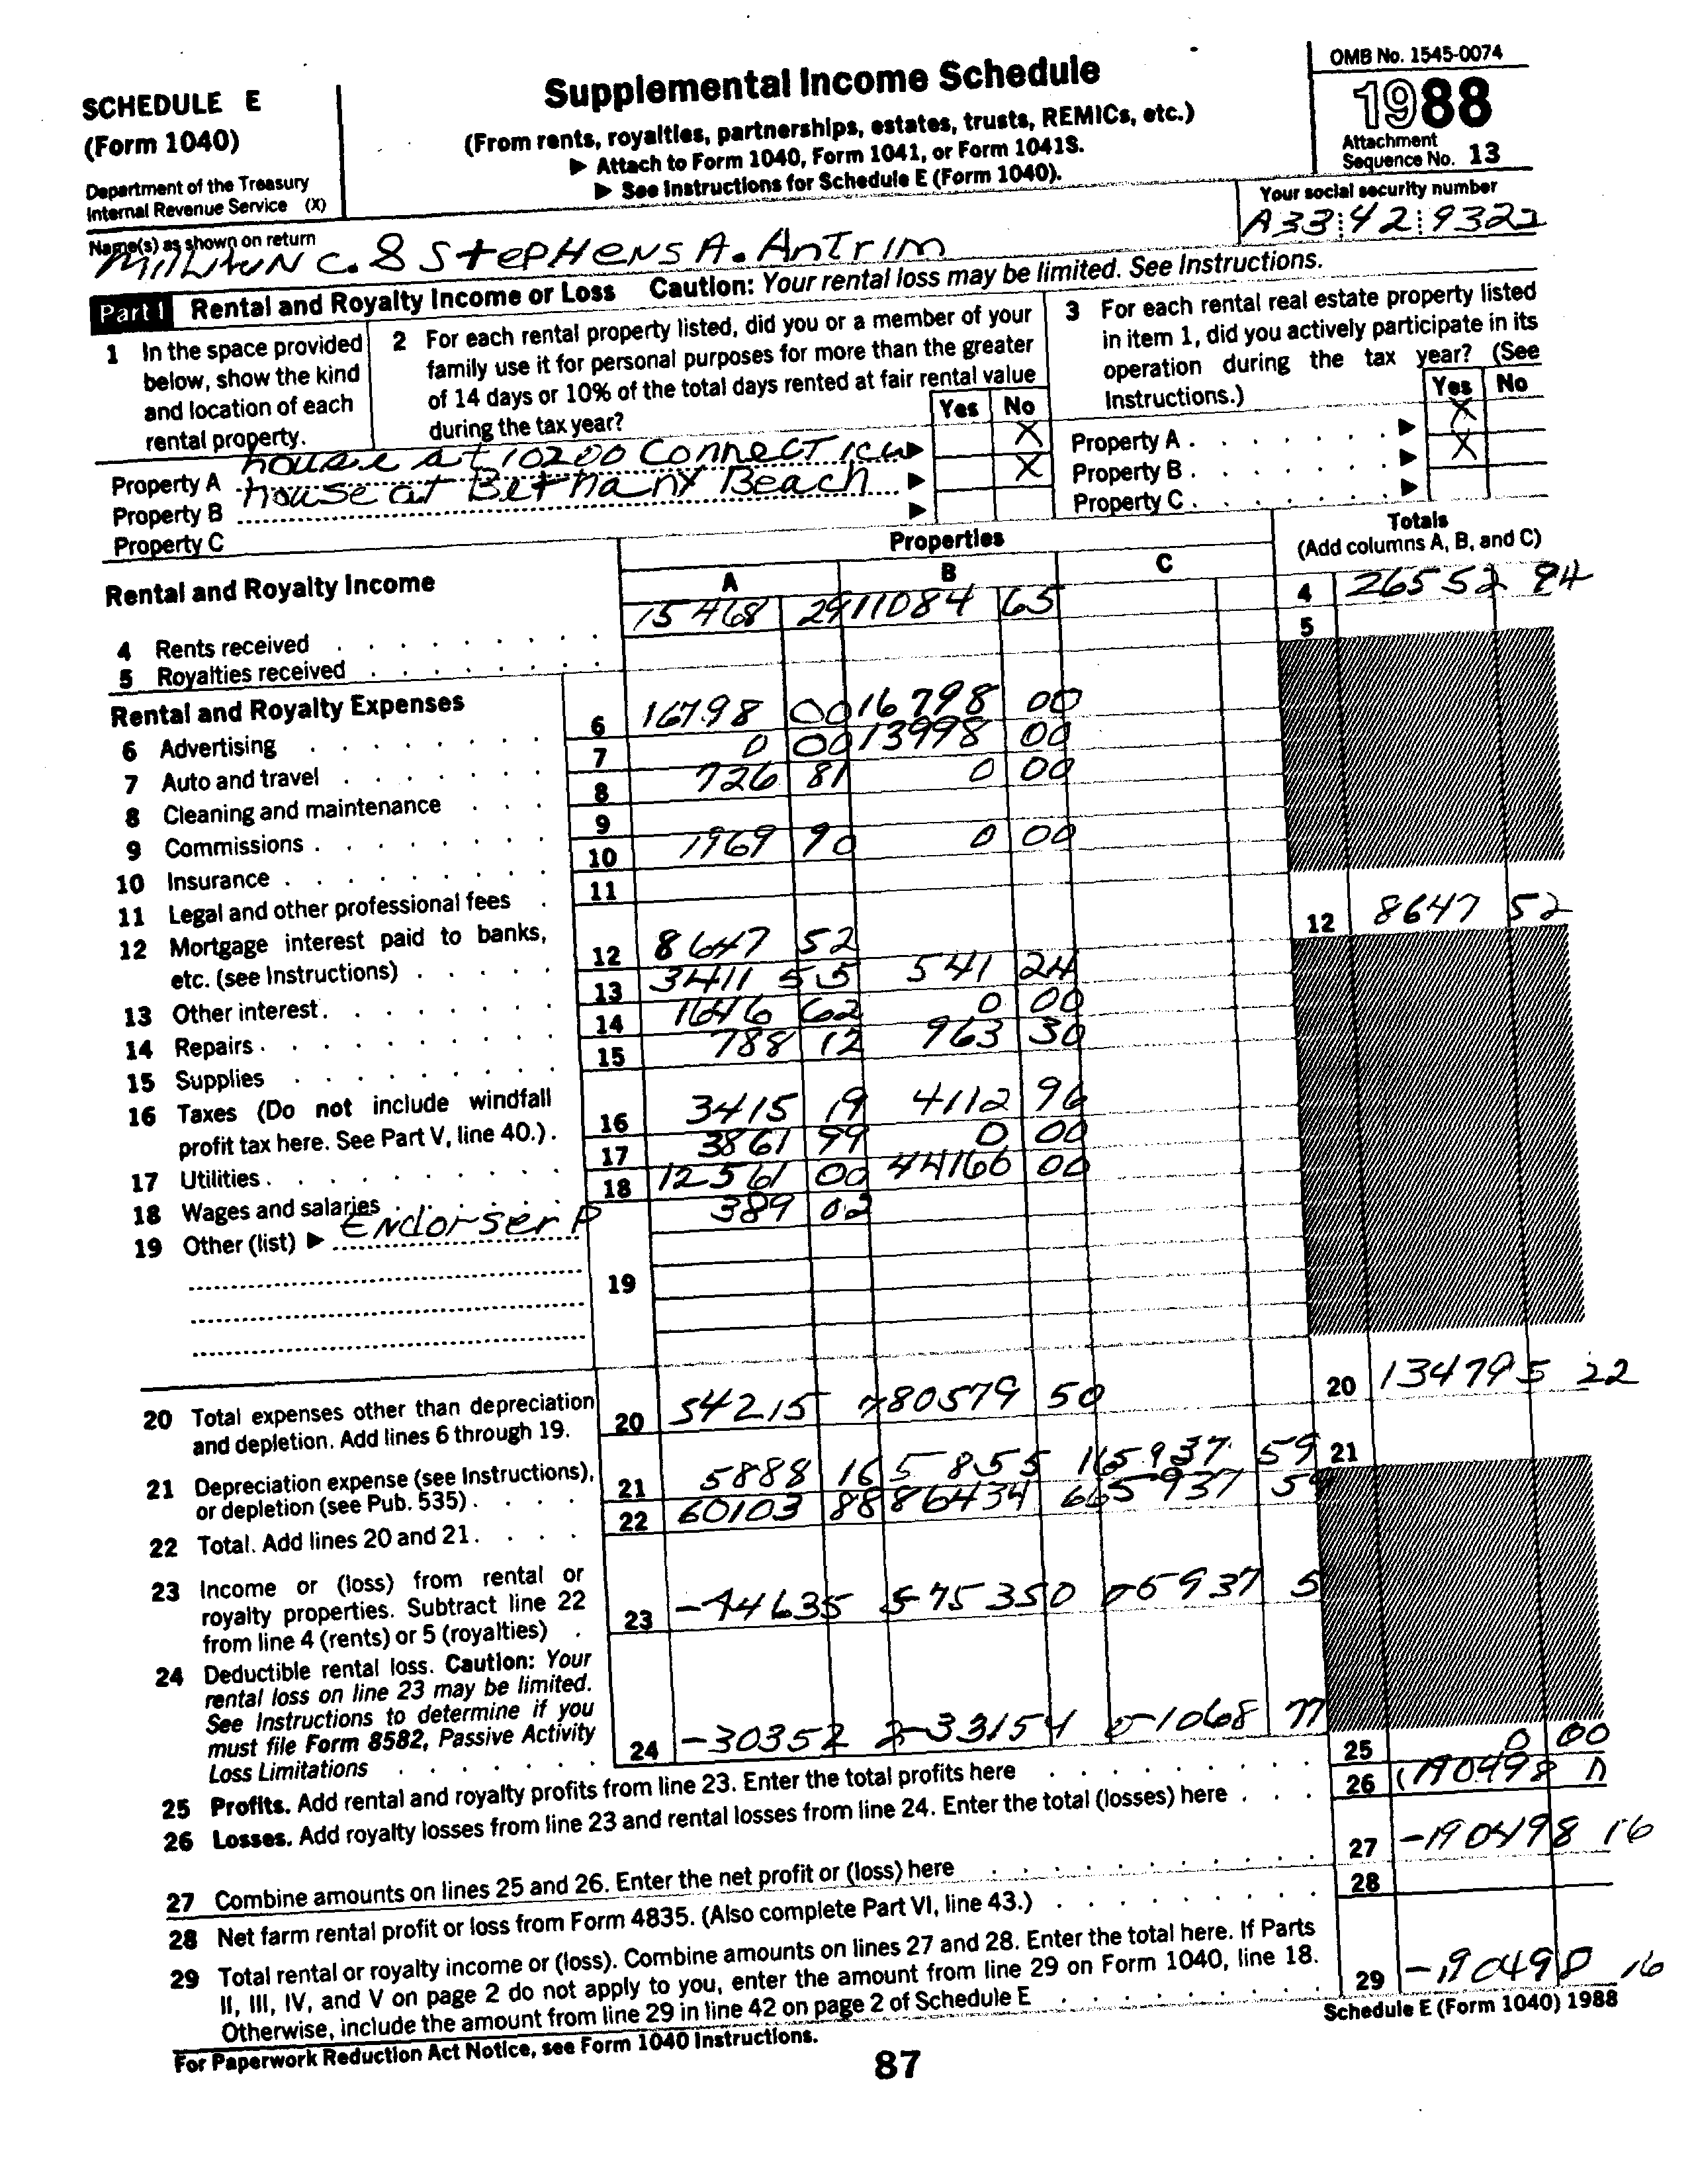 SCHEDULE E
(Form 1040)
Department of the Treasury
Internal Revenue Service (X)
Supplemental Income Schedule
(From rents, royalties, partnerships, estates, trusts, REMICs, etc.)
▶ Attach to Form 1040, Form 1041, or Form 1041S.
▶ See Instructions for Schedule E (Form 1040).
OMB No. 1545-0074
1988
Attachment
Sequence No. 13
Name(s) as shown on return
C. & StepHens A. Antrim
Your social security number
A33 42 932
Part I Rental and Royalty Income or Loss Caution: Your rental loss may be limited. See Instructions.
1 In the space provided
below, show the kind
and location of each
rental property.
2 For each rental property listed, did you or a member of your
family use it for personal purposes for more than the greater
of 14 days or 10% of the total days rented at fair rental value
during the tax year?
Yes No
3 For each rental real estate property listed
in item 1, did you actively participate in its
operation during the tax year? (See
Instructions.)
Yes No
Property A house at 10200 Connecticu ▶ X
Property B house at Bethany Beach ▶ X
Property C ▶
Property A . ▶ X
Property B . ▶ X
Property C . ▶
Properties
Totals
(Add columns A, B, and C)
Rental and Royalty Income
A B C
4 Rents received 15468 29 11084 65 4 26552 94
5 Royalties received 5
Rental and Royalty Expenses
6 Advertising 6 16798 00 16798 00
7 Auto and travel 7 0 00 13998 00
8 Cleaning and maintenance 8 726 81 0 00
9 Commissions 9
10 Insurance 10 1969 90 0 00
11 Legal and other professional fees 11
12 Mortgage interest paid to banks,
etc. (see Instructions) 12 8647 52 12 8647 52
13 Other interest 13 3411 55 541 24
14 Repairs 14 1646 62 0 00
15 Supplies 15 788 12 963 30
16 Taxes (Do not include windfall
profit tax here. See Part V, line 40.) 16 3415 19 4112 96
17 Utilities 17 3861 99 0 00
18 Wages and salaries 18 12561 00 44166 00
19 Other (list) ▶ Endorser P 389 02
19
20 Total expenses other than depreciation
and depletion. Add lines 6 through 19. 20 54215 780579 50 20 134795 22
21 Depreciation expense (see Instructions),
or depletion (see Pub. 535) 21 5888 16 5855 165937 59 21
22 Total. Add lines 20 and 21. 22 60103 88 86434 665937 59
23 Income or (loss) from rental or
royalty properties. Subtract line 22
from line 4 (rents) or 5 (royalties) 23 -44635 5-75350 0-5937 5
24 Deductible rental loss. Caution: Your
rental loss on line 23 may be limited.
See Instructions to determine if you
must file Form 8582, Passive Activity
Loss Limitations 24 -30352 2-33154 0-1068 77
25 Profits. Add rental and royalty profits from line 23. Enter the total profits here 25 0 00
26 Losses. Add royalty losses from line 23 and rental losses from line 24. Enter the total (losses) here 26
27 Combine amounts on lines 25 and 26. Enter the net profit or (loss) here 27 -190498 16
28 Net farm rental profit or loss from Form 4835. (Also complete Part VI, line 43.) 28
29 Total rental or royalty income or (loss). Combine amounts on lines 27 and 28. Enter the total here. If Parts
II, III, IV, and V on page 2 do not apply to you, enter the amount from line 29 on Form 1040, line 18.
Otherwise, include the amount from line 29 in line 42 on page 2 of Schedule E 29 -190498 16
For Paperwork Reduction Act Notice, see Form 1040 Instructions.
Schedule E (Form 1040) 1988
87